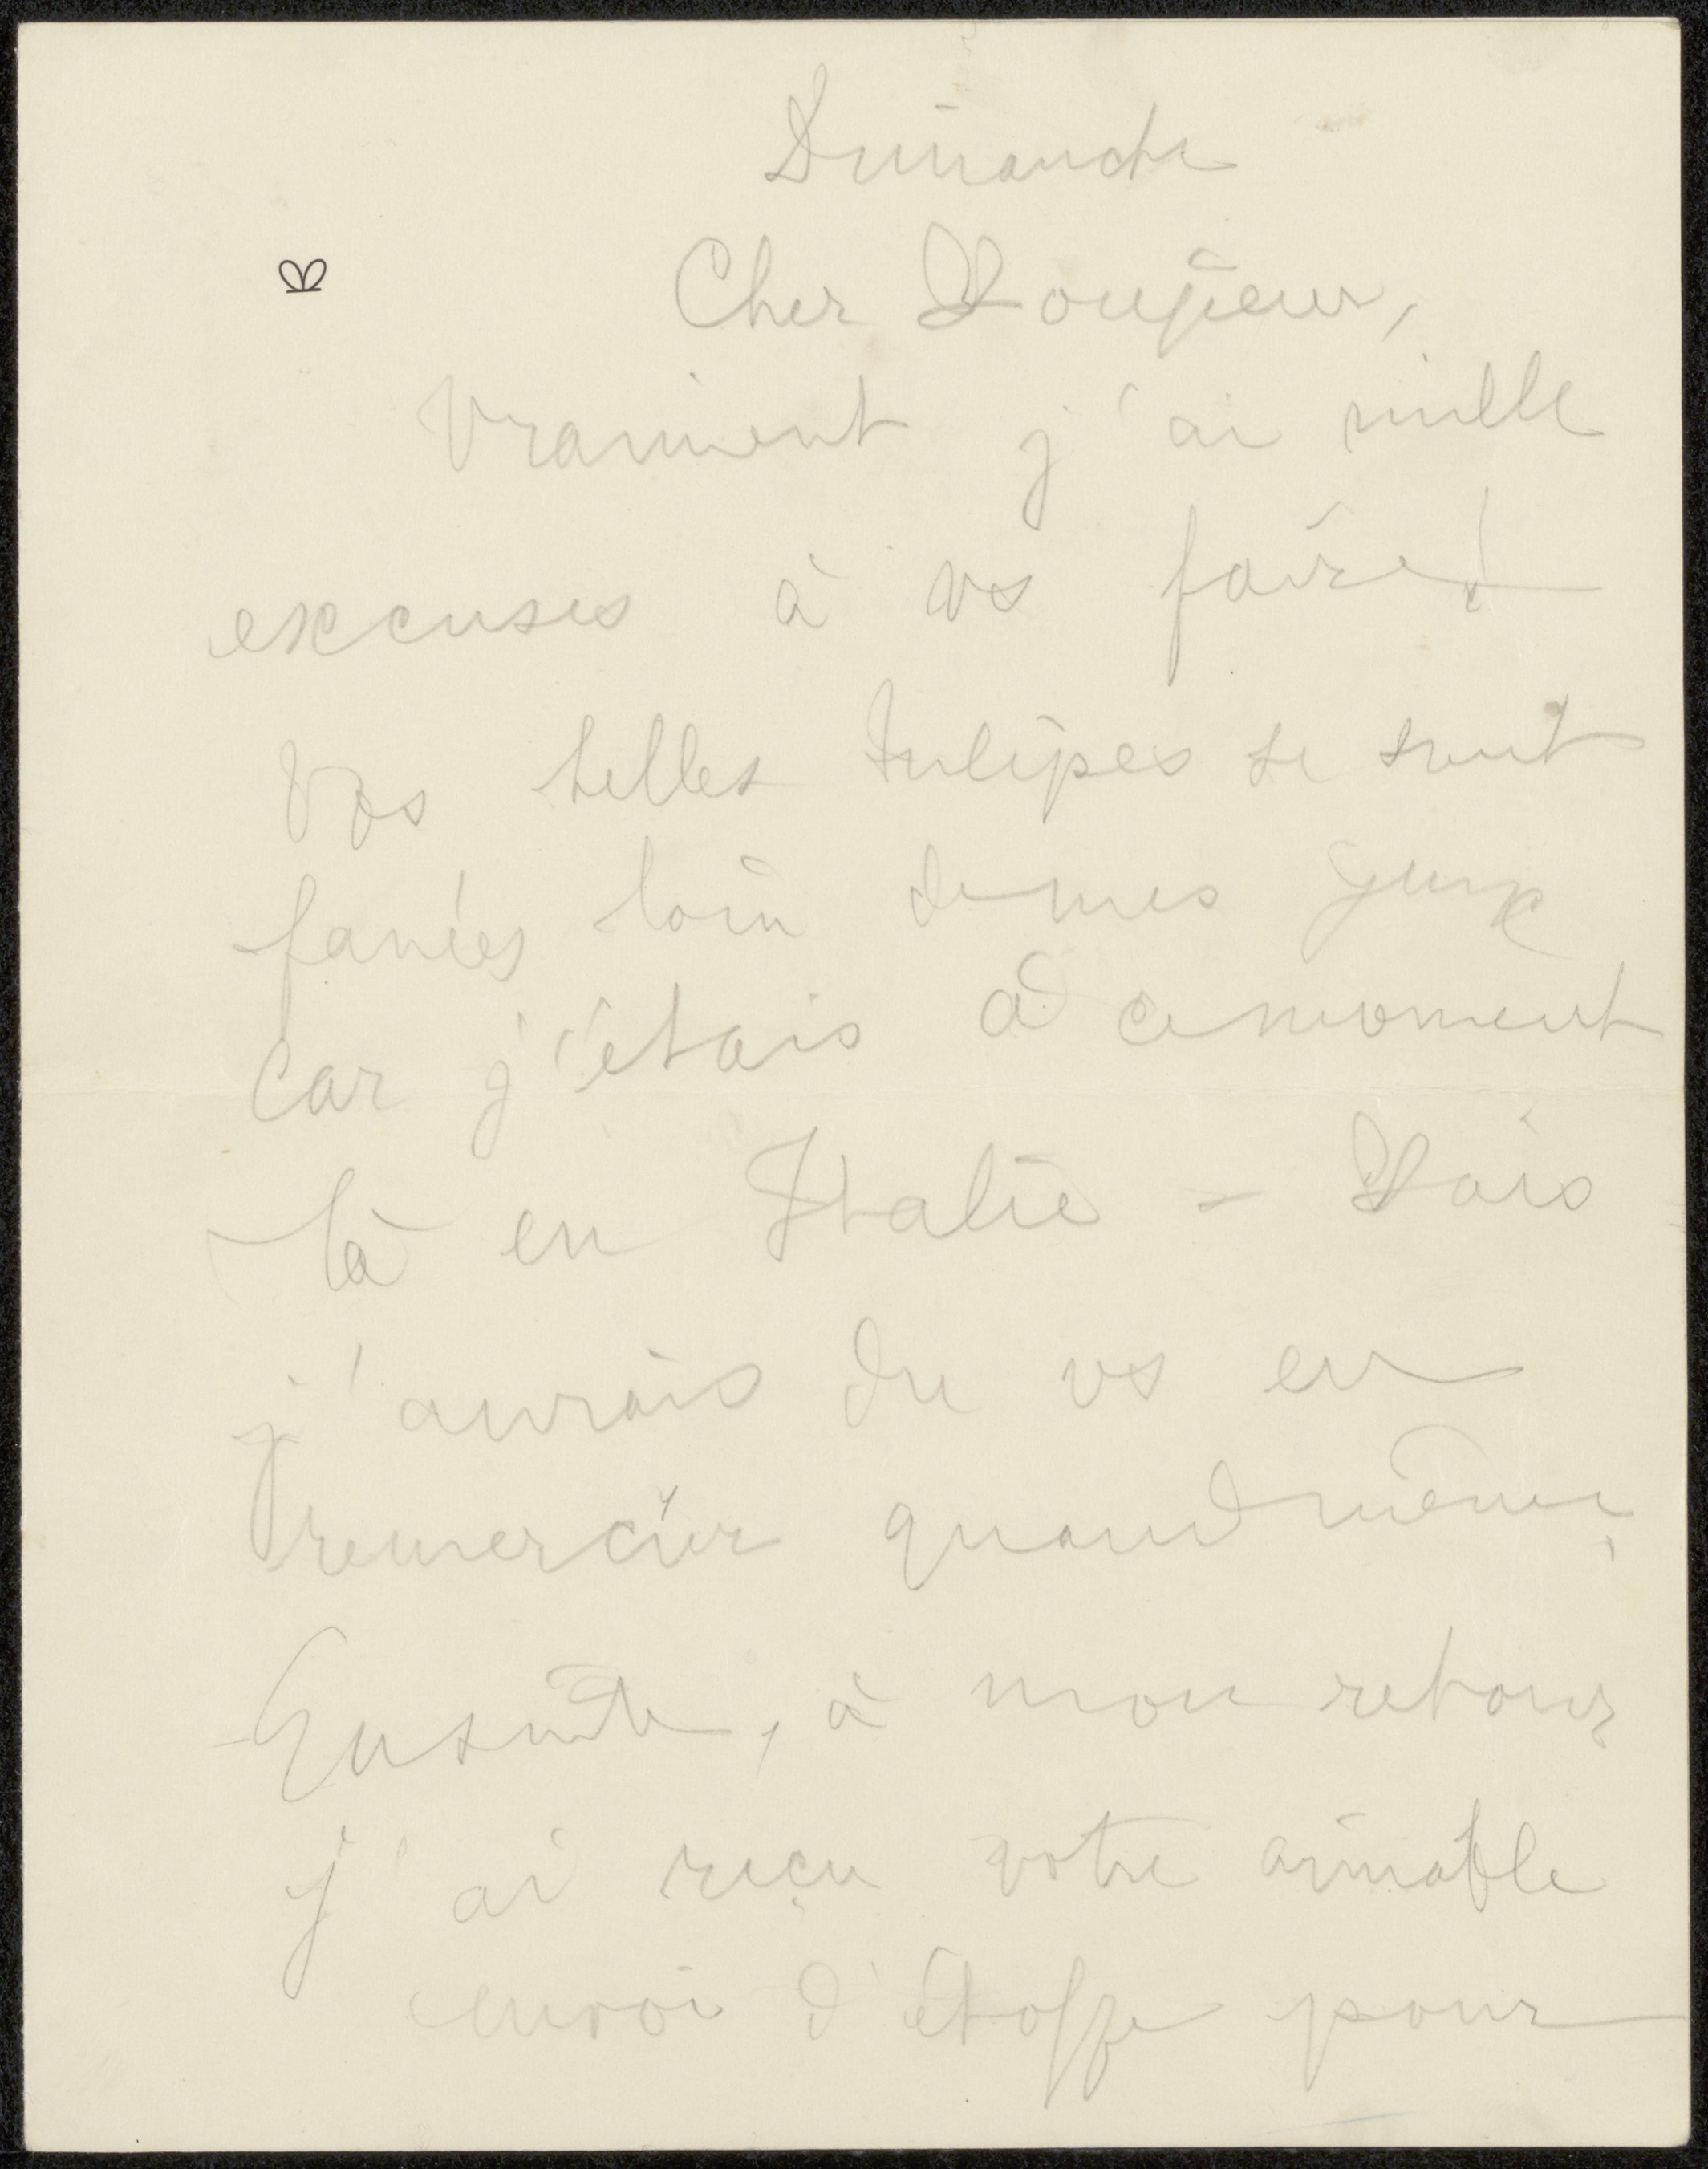 Dimanche
Cher Monsieur,
Vraiment j'ai mille
excuses à vs faire!
Vos belles tulipes se sont
fanées loin de mes yeux
car j'étais à ce moment
là en Italie - Mais
j'aurais du vs en
remercier quand même,
Ensuite, à mon retour
j'ai reçu votre aimable
envoi d'étoffe pour